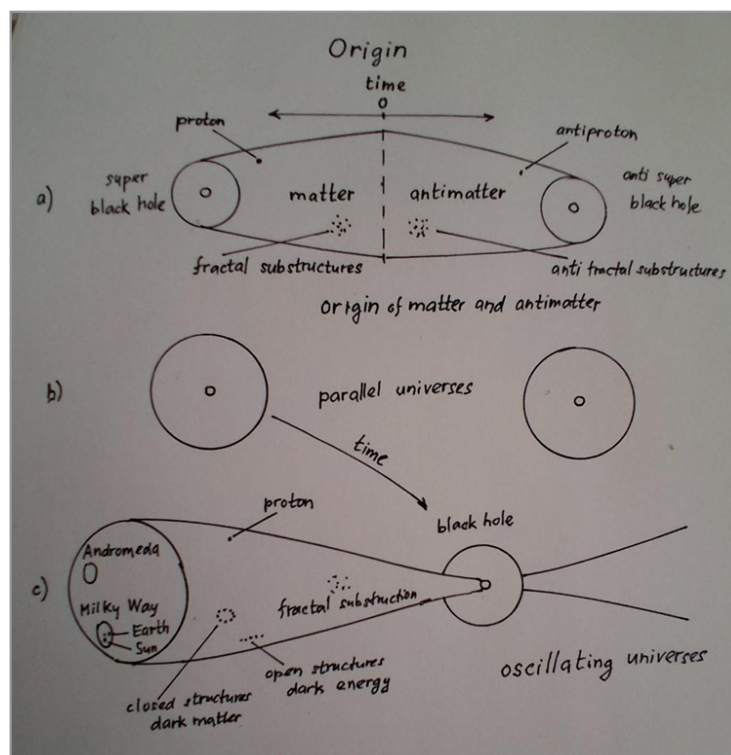 Origin
time
0
proton
antiproton
a)
super
black hole
matter
antimatter
anti super
black hole
fractal substructures
anti fractal substructures
origin of matter and antimatter
b)
parallel universes
time
proton
black hole
c)
Andromeda
Milky Way
Earth
Sun
fractal substruction
closed structures
dark matter
open structures
dark energy
oscillating universes